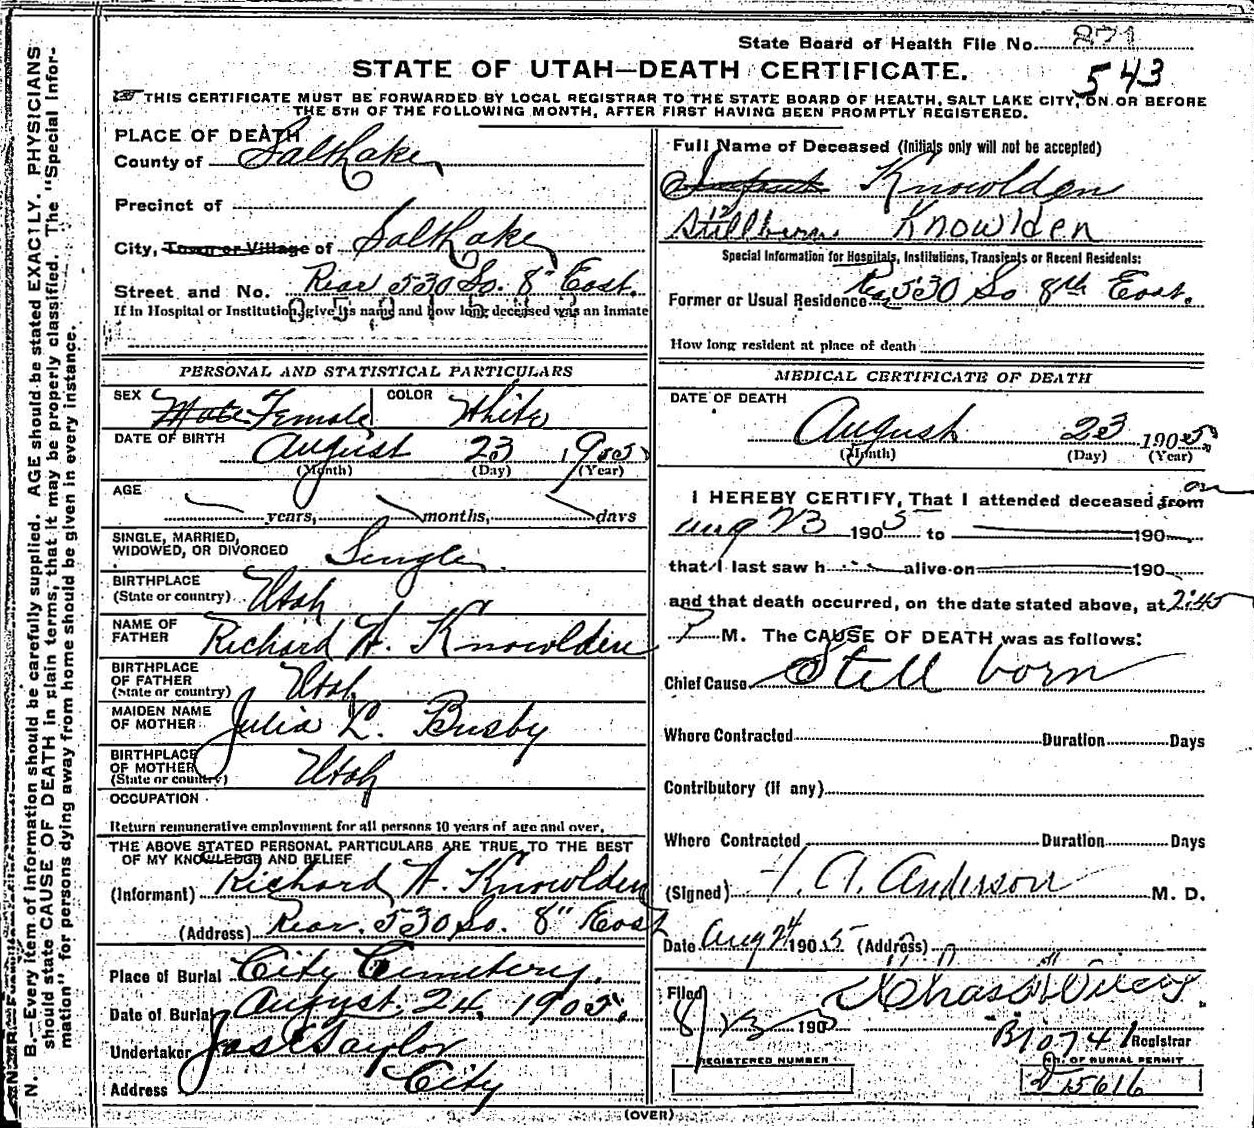 State Board of Health File No. 871
543
STATE OF UTAH—DEATH CERTIFICATE.
THIS CERTIFICATE MUST BE FORWARDED BY LOCAL REGISTRAR TO THE STATE BOARD OF HEALTH, SALT LAKE CITY, ON OR BEFORE
THE 5TH OF THE FOLLOWING MONTH, AFTER FIRST HAVING BEEN PROMPTLY REGISTERED.
N. B.—Every item of information should be carefully supplied. AGE should be stated EXACTLY. PHYSICIANS
should state CAUSE OF DEATH in plain terms, that it may be properly classified. The "Special Infor-
mation" for persons dying away from home should be given in every instance.
PLACE OF DEATH
County of Salt Lake
Precinct of
City, Town or Village of Salt Lake
Street and No. Rear 530 So. 8" East.
If in Hospital or Institution, give its name and how long deceased was an inmate
PERSONAL AND STATISTICAL PARTICULARS
SEX Male Female COLOR White
DATE OF BIRTH August 23 1905
(Month) (Day) (Year)
AGE
years, months, days
SINGLE, MARRIED,
WIDOWED, OR DIVORCED Single
BIRTHPLACE
(State or country) Utah
NAME OF
FATHER Richard H. Knowlden
BIRTHPLACE
OF FATHER
(State or country) Utah
MAIDEN NAME
OF MOTHER Julia L. Busby
BIRTHPLACE
OF MOTHER
(State or country) Utah
OCCUPATION
Return remunerative employment for all persons 10 years of age and over.
THE ABOVE STATED PERSONAL PARTICULARS ARE TRUE TO THE BEST
OF MY KNOWLEDGE AND BELIEF
(Informant) Richard H. Knowlden
(Address) Rear. 530 So. 8" East
Place of Burial City Cemetery.
Date of Burial August. 24. 1905.
Undertaker Jos E Taylor
Address City
Full Name of Deceased (Initials only will not be accepted)
Infant Knowlden
Stillborn Knowlden
Special Information for Hospitals, Institutions, Transients or Recent Residents:
Former or Usual Residence Rear 530 So 8th East.
How long resident at place of death
MEDICAL CERTIFICATE OF DEATH
DATE OF DEATH
August 23 1905
(Month) (Day) (Year)
I HEREBY CERTIFY, That I attended deceased from on
Aug 23 1905 to 190
that I last saw h alive on 190
and that death occurred, on the date stated above, at 2:45
P M. The CAUSE OF DEATH was as follows:
Chief Cause Still born
Where Contracted Duration Days
Contributory (If any)
Where Contracted Duration Days
(Signed) A. Anderson M. D.
Date Aug 24 1905 (Address)
Filed
8/23 1905 Chas Wilcox
B10741 Registrar
REGISTERED NUMBER
NO. OF BURIAL PERMIT
D 15616
(OVER)